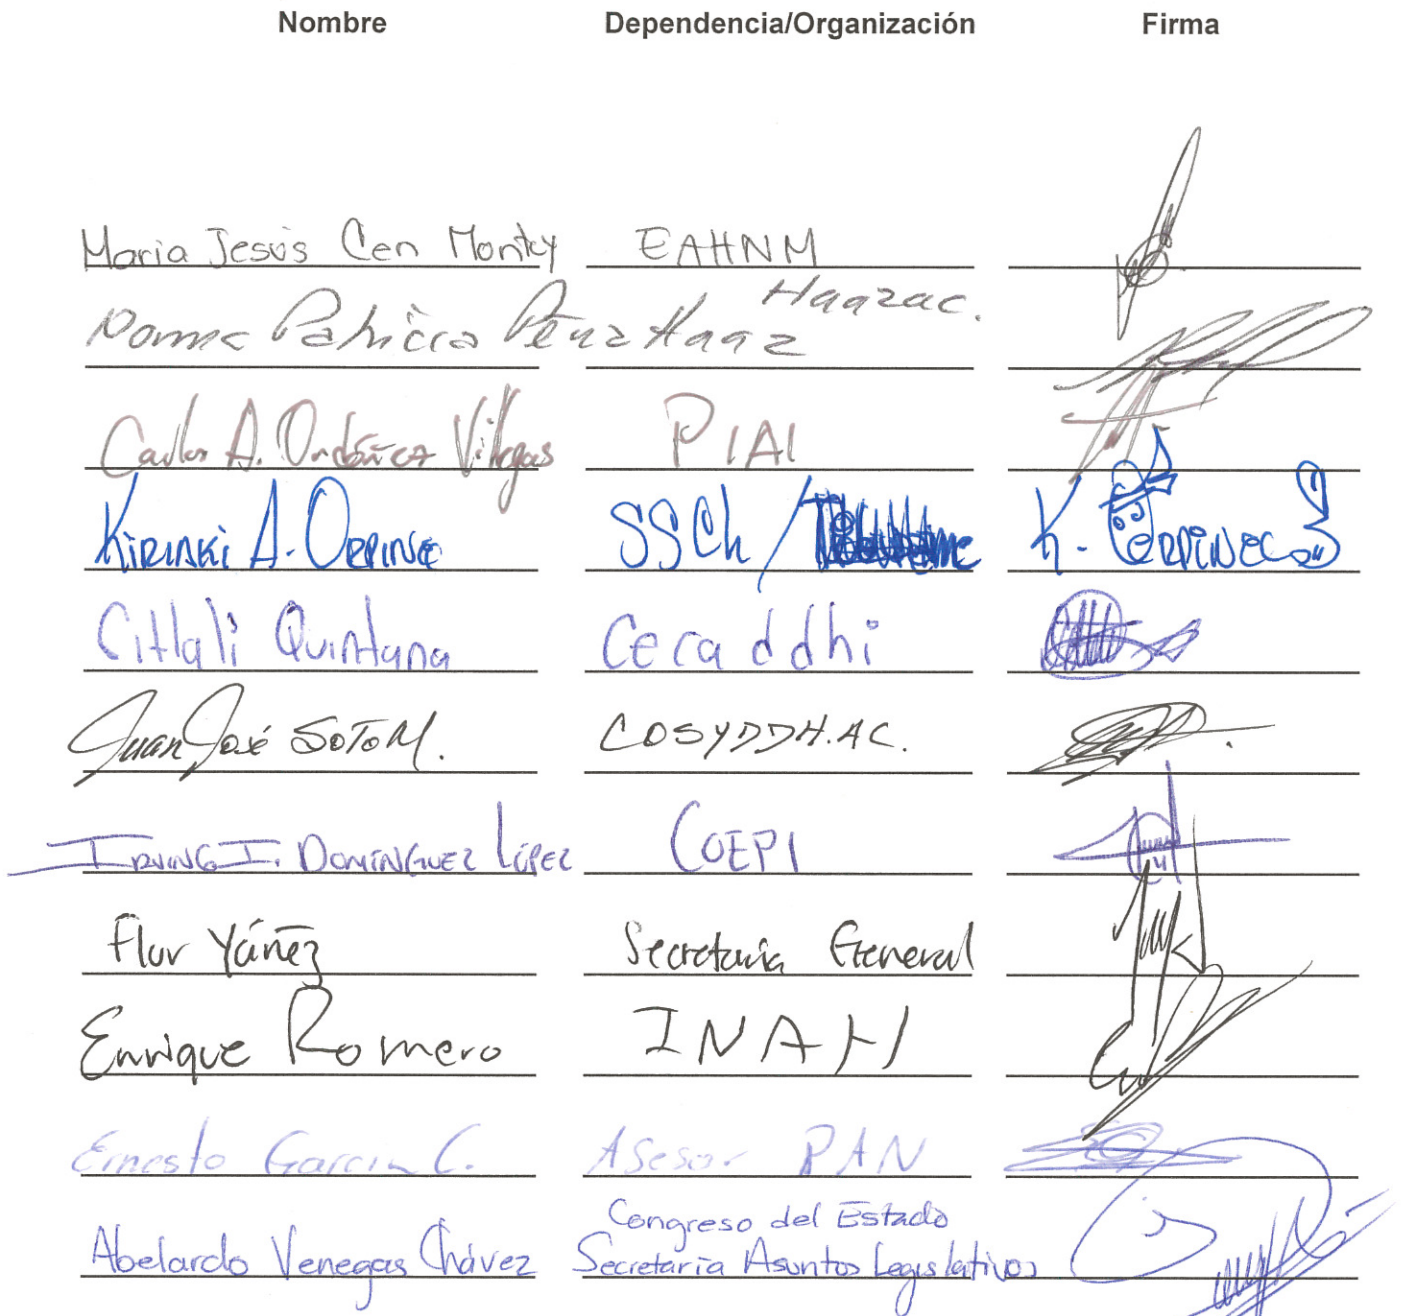 Nombre Dependencia/Organización Firma
Maria Jesús Cen Montuy EAHNM
Haazac.
Norma Patricia Peña Haaz
Carlos A. Ordóñez Villegas PIAI
Kirinki A. Orpinel SSCh /
K. Orpinel
Citlali Quintana Ceraddhi
Juan José SOTO M. COSYDDH.AC.
IRVING I. DOMÍNGUEZ LÓPEZ COEPI
Flor Yáñez Secretaría General
Enrique Romero INAH
Ernesto García C. Asesor PAN
Congreso del Estado
Abelardo Venegas Chávez Secretaría Asuntos Legislativos